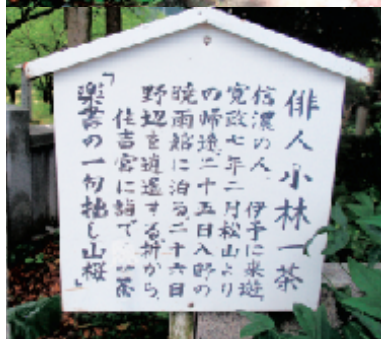 俳人小林一茶
信濃の人、伊予に来遊、
寛政七年二月松山より
の帰途、二十五日入野の
暁雨館に泊る二十六日
野辺を逍遥する折から、
住吉宮に詣で 一茶
「楽書の一句拙し山桜」